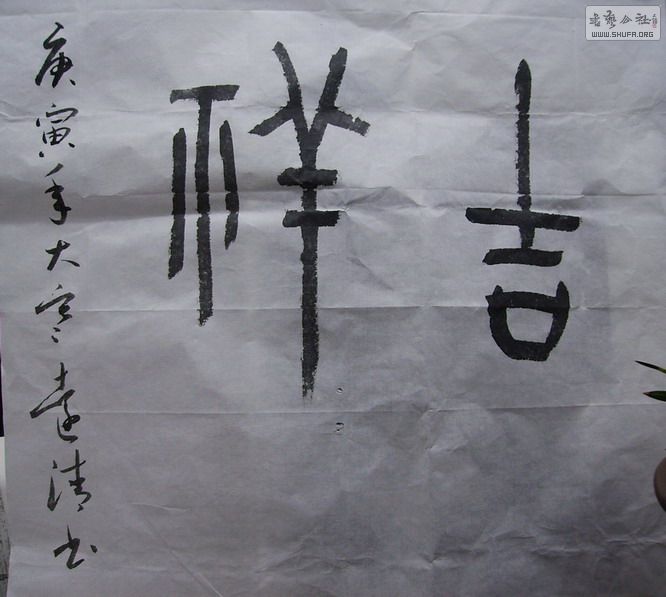 吉祥
庚寅年大寒遠清书
书艺公社
WWW.SHUFA.ORG